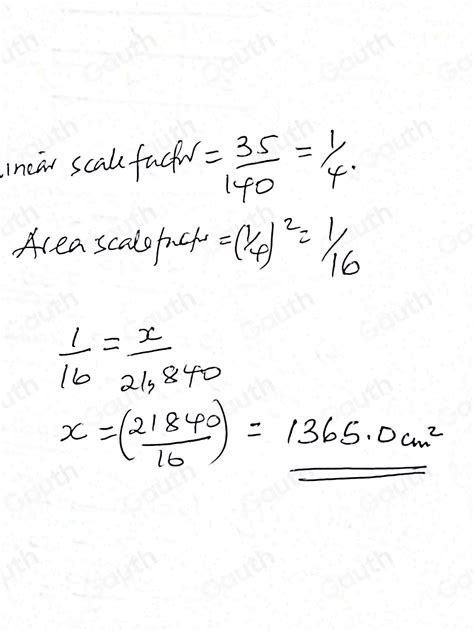 Linear scale factor = 35/140 = 1/4.
Area scale factor = (1/4)² = 1/16
1/16 = x/21,840
x = (21840/16) = 1365.0cm²
Gauth